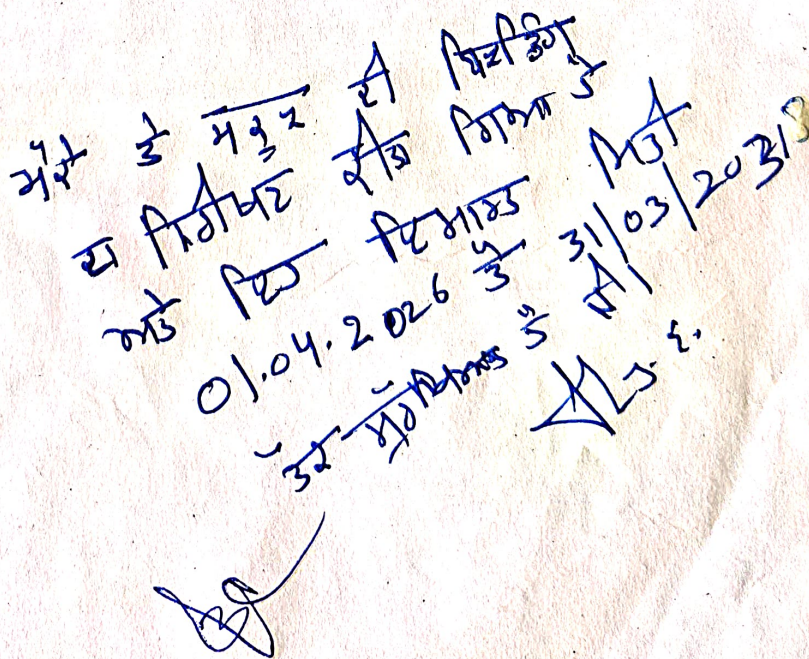 ਮੌਕੇ ਤੇ ਸਕੂਲ ਦੀ ਬਿਲਡਿੰਗ
ਦਾ ਨਿਰੀਖਣ ਕੀਤਾ ਗਿਆ ਹੈ
ਅਤੇ ਇਹ ਇਮਾਰਤ ਮਿਤੀ
01.04.2026 ਤੋਂ 31/03/2031
ਤੱਕ ਸੁਰੱਖਿਅਤ ਹੈ ਜੀ।